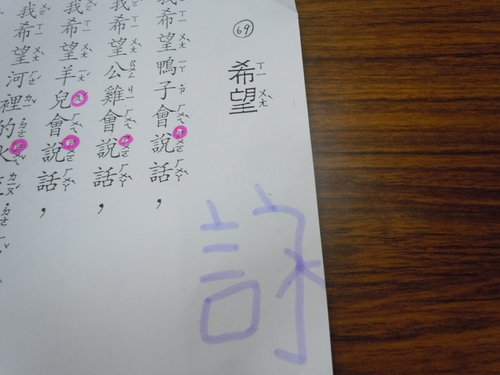 69
希望
我希望鴨子會說話，
我希望公雞會說話，
我希望羊兒會說話，
我希望河裡的水
詠